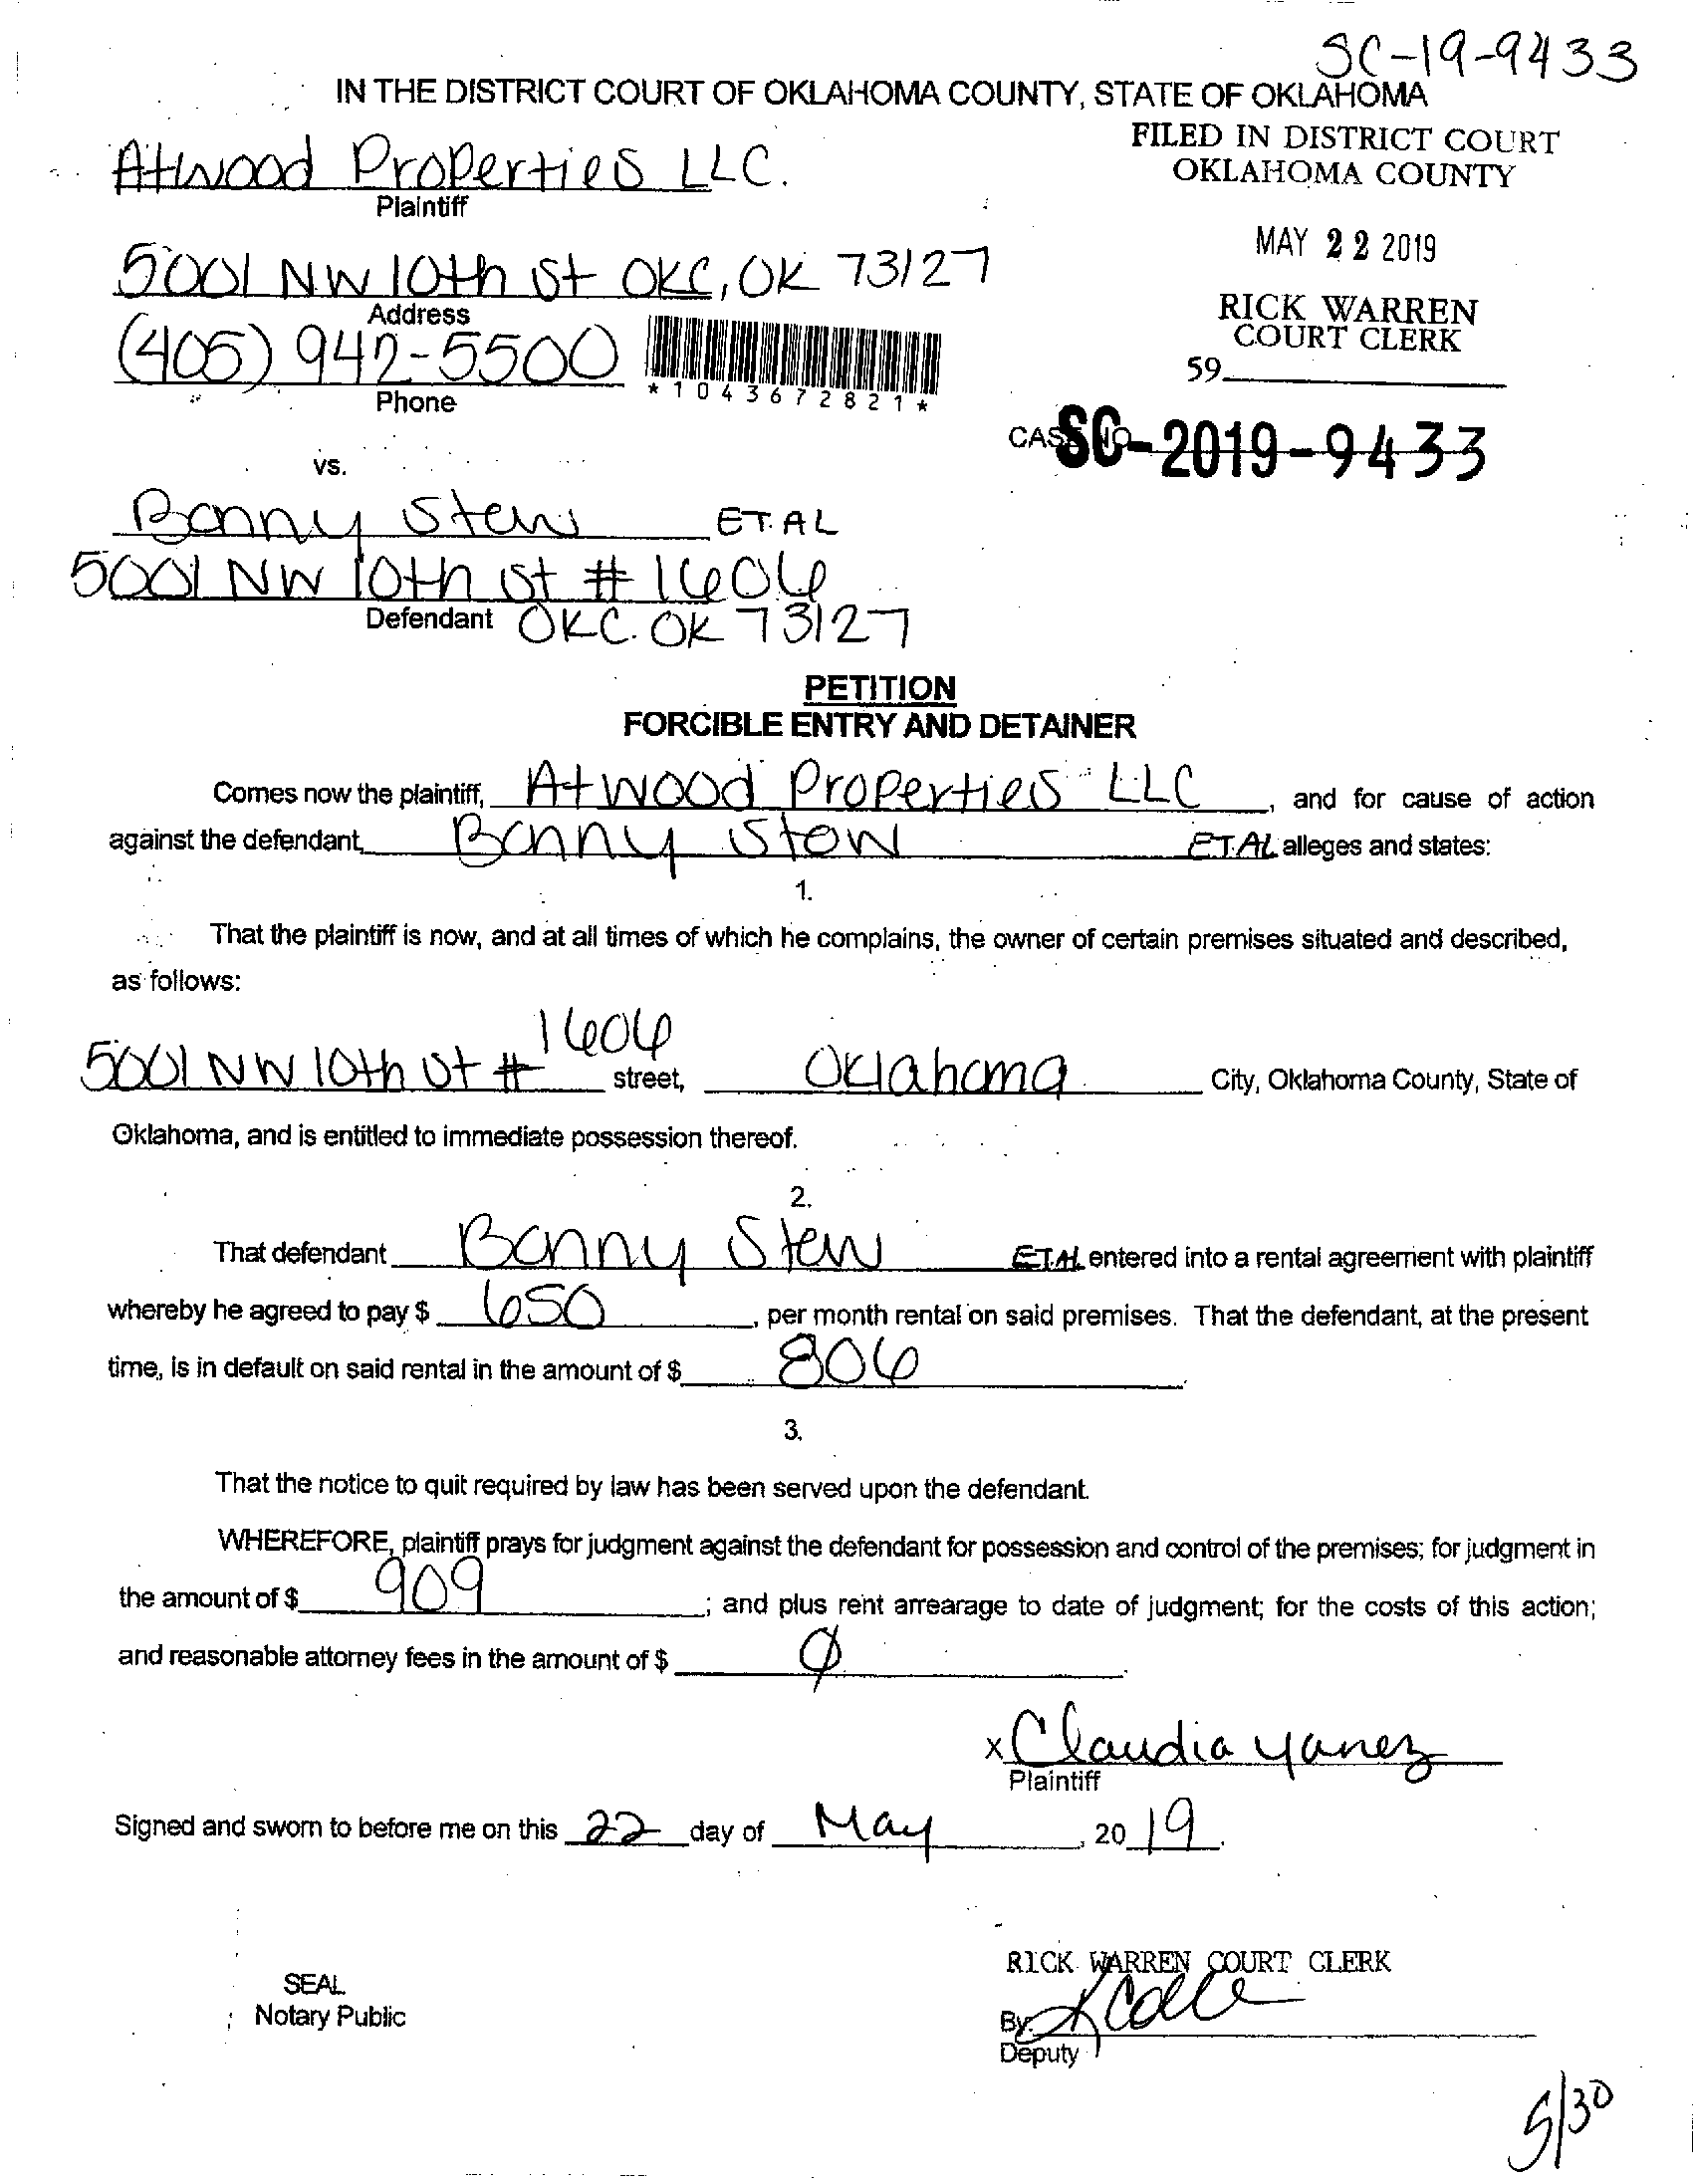 SC-19-9433
IN THE DISTRICT COURT OF OKLAHOMA COUNTY, STATE OF OKLAHOMA
FILED IN DISTRICT COURT
OKLAHOMA COUNTY
Atwood Properties LLC.
Plaintiff
MAY 22 2019
5001 NW 10th St OKC, OK 73127
Address
RICK WARREN
COURT CLERK
(405) 942-5500
59
Phone
*1043672821*
CASE NO. SC-2019-9433
vs.
Banny Stew ET. AL
5001 NW 10th St # 1606
Defendant OKC. OK 73127
PETITION
FORCIBLE ENTRY AND DETAINER
Comes now the plaintiff, Atwood Properties LLC, and for cause of action
against the defendant, Banny Stew ET.AL alleges and states:
1.
That the plaintiff is now, and at all times of which he complains, the owner of certain premises situated and described,
as follows:
5001 NW 10th St # 1606 street, Oklahoma City, Oklahoma County, State of
Oklahoma, and is entitled to immediate possession thereof.
2.
That defendant Banny Stew ET.AL entered into a rental agreement with plaintiff
whereby he agreed to pay $ 650, per month rental on said premises. That the defendant, at the present
time, is in default on said rental in the amount of $ 806.
3.
That the notice to quit required by law has been served upon the defendant.
WHEREFORE, plaintiff prays for judgment against the defendant for possession and control of the premises; for judgment in
the amount of $ 909; and plus rent arrearage to date of judgment; for the costs of this action;
and reasonable attorney fees in the amount of $ Ø.
x Claudia Yanez
Plaintiff
Signed and sworn to before me on this 22 day of May, 2019.
RICK WARREN COURT CLERK
SEAL
Notary Public
By:
Deputy
5/30